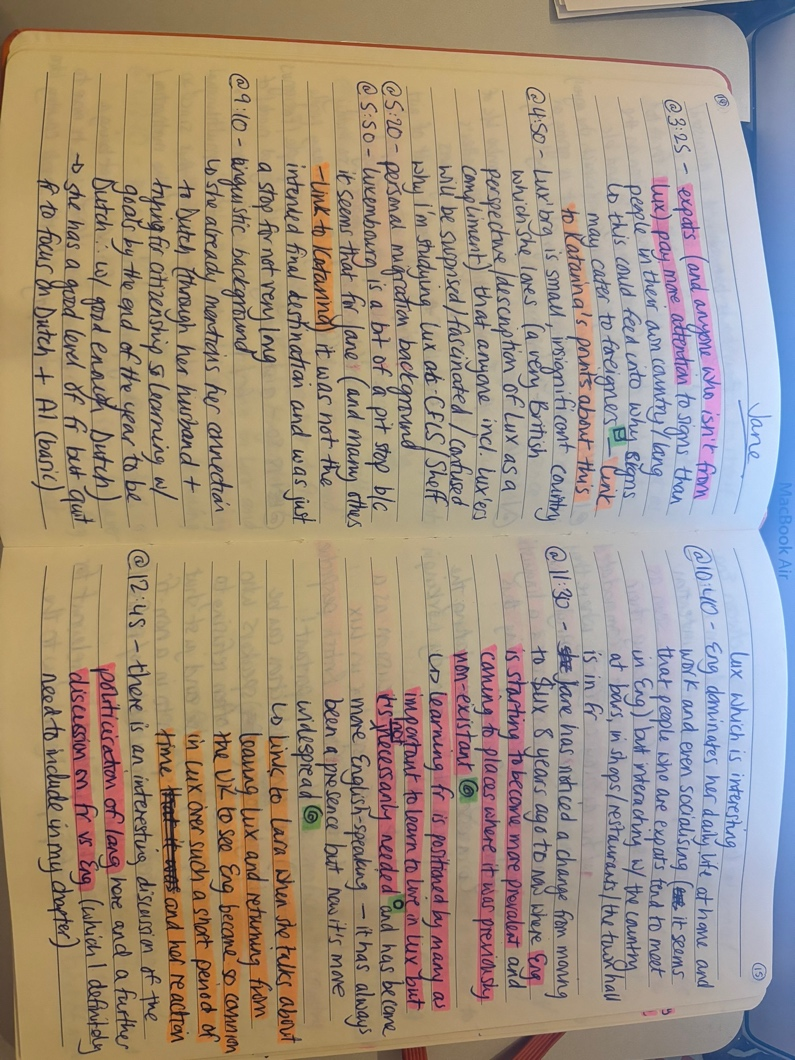 Jane
@3:25 - expats (and anyone who isn't from
lux) pay more attention to signs than
people in their own country/lang
↳ this could feed into why signs
may cater to foreigners - link
to Katarina's points about this
@4:50 - Lux'brg is small, insignificant country
which she loves (a very British
perspective/discription of Lux as a
compliment) that anyone incl. lux'ers
will be suprised/fascinated/confused
why I'm studying Lux
@5:20 - personal migration background
@5:50 - Luxembourg is a bit of a pit stop b/c
it seems that for Jane (and many others
- link to Katarina) it was not the
intended final distination and was just
a stop for not very long
@9:10 - linguistic background
↳ she already mentions her connection
to Dutch (through her husband +
trying for citizenship so learning w/
goals by the end of the year to be
Dutch... w/ good enough Dutch)
→ she has a good level of fr but quit
fr to focus on Dutch + A1 (basic)
15
lux which is interesting
@10:40 - Eng dominates her daily life at home and
work and even socialising (it seems
that people who are expats tend to meet
in Eng) but interacting w/ the country
at bars, in shops/restaurants/the town hall
is in fr
@11:30 - Jane has noticed a change from moving
to Lux 8 years ago to now where Eng
is starting to become more prevalent and
coming to places where it was previously
non-existant
↳ learning fr is positioned by many as
important to learn to live in lux but
its not necessarily needed and has become
more English-speaking - it has always
been a presence but now it's more
widespread
↳ links to Lara when she talks about
leaving Lux and returning from
the UK to see Eng become so common
in Lux over such a short period of
time and her reaction
@12:45 - there is an interesting discussion of the
politiciation of lang here and a further
discussion on fr vs Eng (which I definitely
need to include in my chapter)
MacBook Air